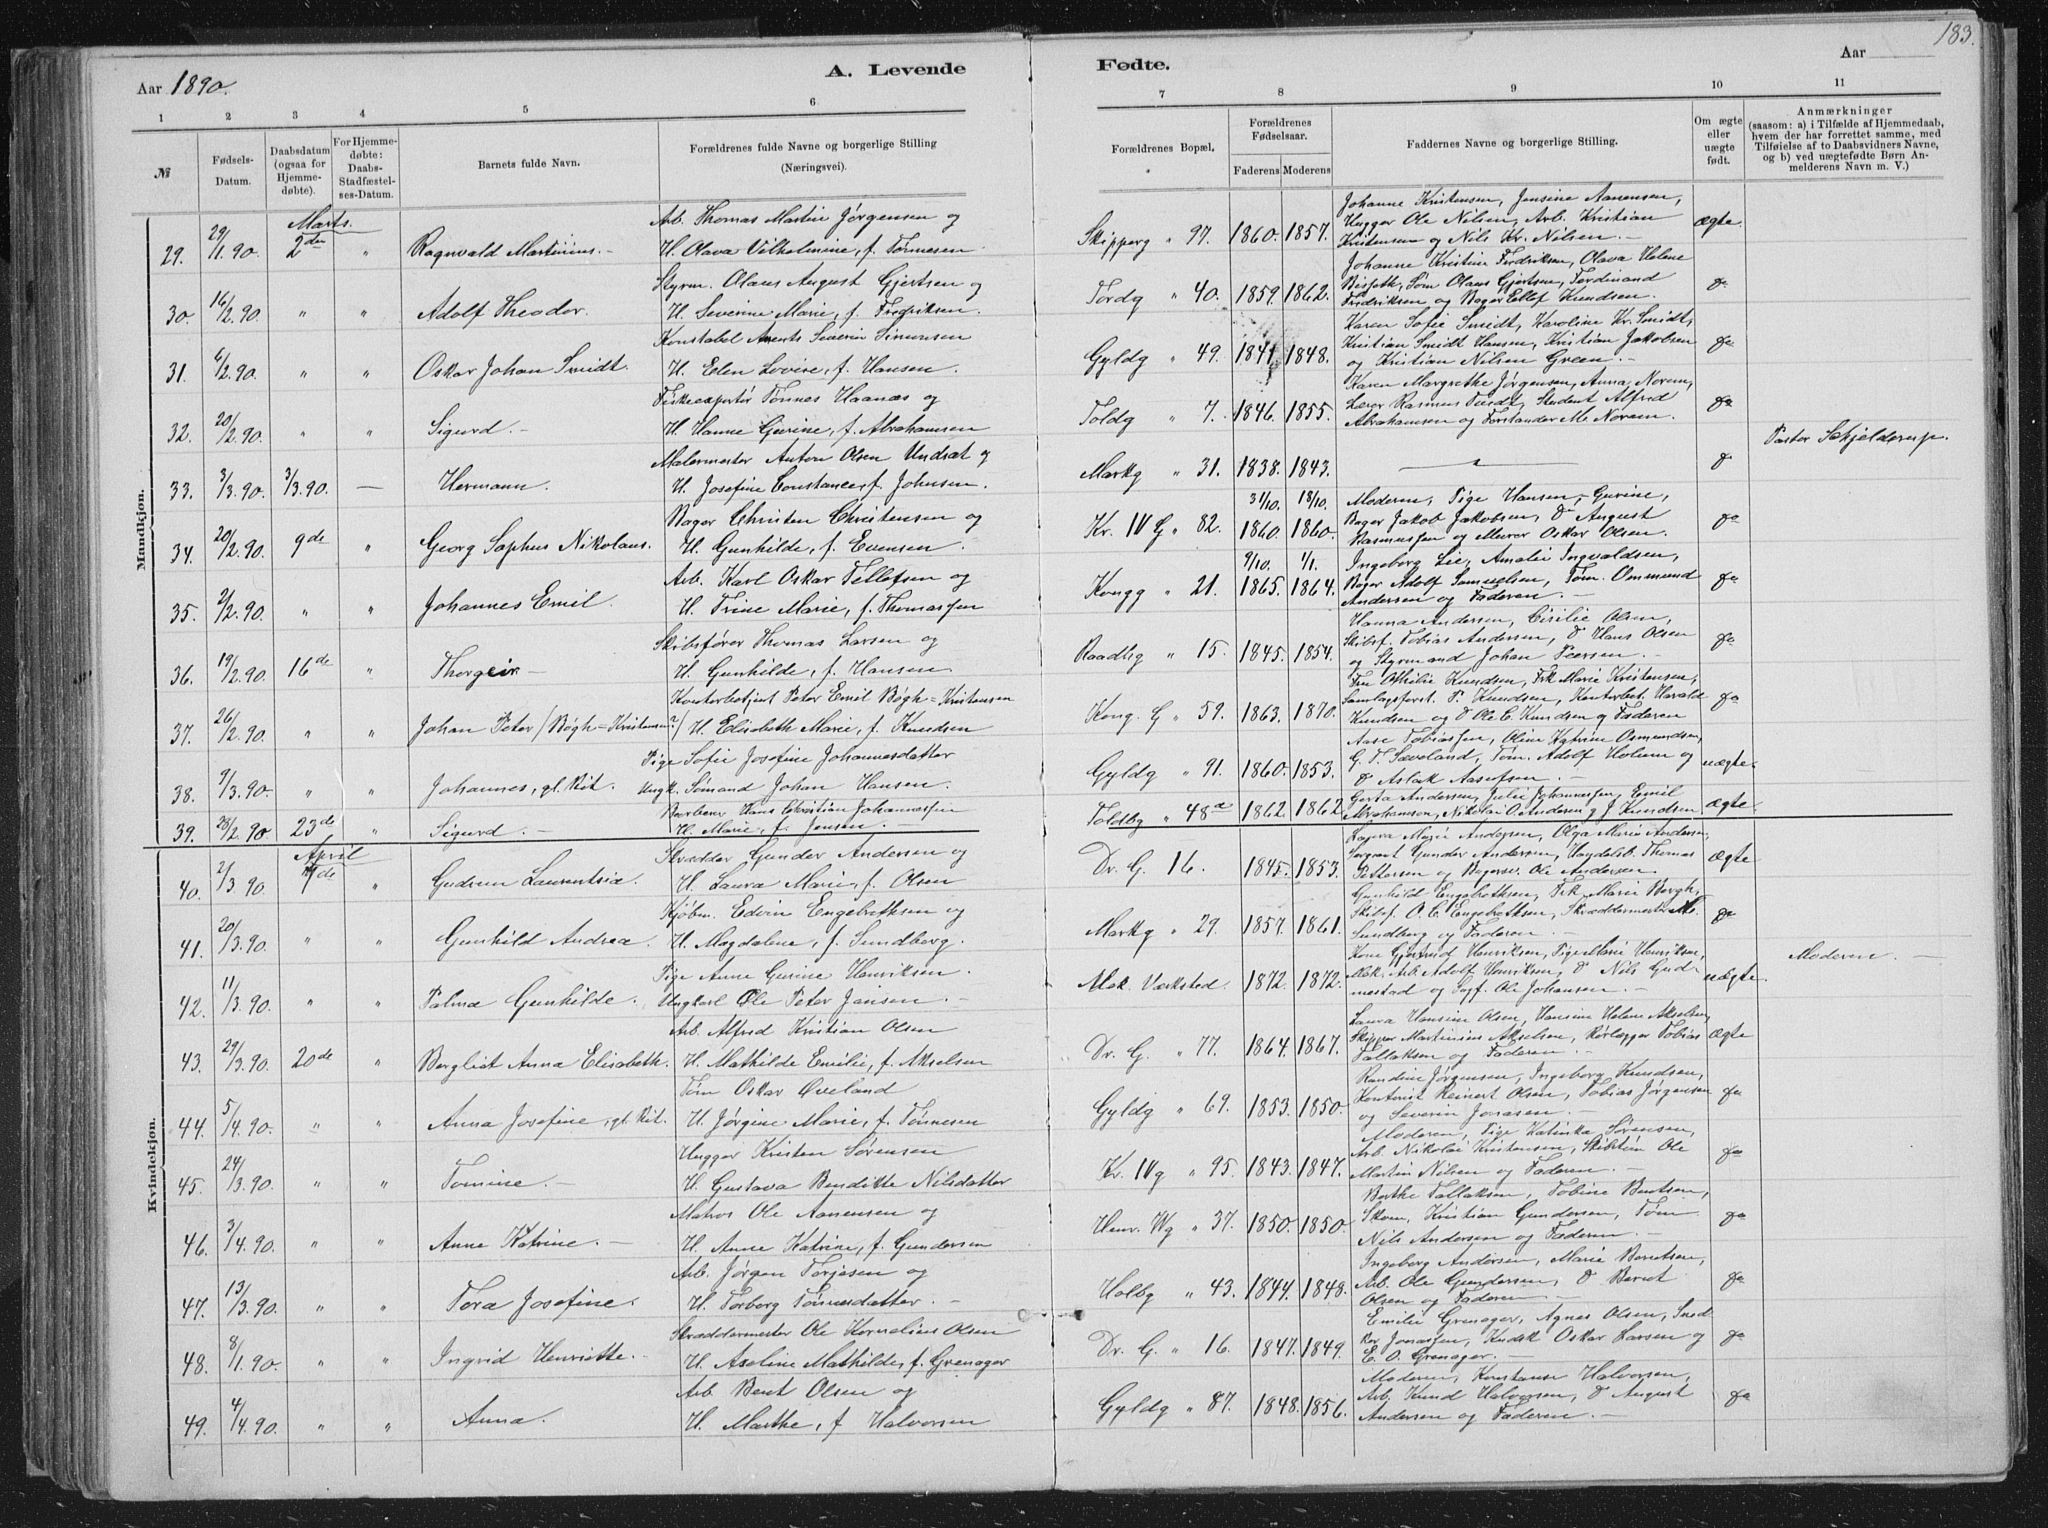 183.
Aar 1890.
A. Levende
Fødte.
Aar
1 2 3 4 5 6 7 8 9 10 11
№
Fødsels-Datum.
Daabsdatum (ogsaa for Hjemme-døbte).
For Hjemme-døbte: Daabs-Stadfæstel-ses-Datum.
Barnets fulde Navn.
Forældrenes fulde Navne og borgerlige Stilling (Næringsvei).
Forældrenes Bopæl.
Forældrenes Fødselsaar.
Faderens Moderens
Faddernes Navne og borgerlige Stilling.
Om ægte eller uægte født.
Anmærkninger (saasom: a) i Tilfælde af Hjemmedaab, hvem der har forrettet samme, med Tilføielse af to Daabsvidners Navne, og b) ved uægtefødte Børn An-melderens Navn m. V.)
Mandkjøn.
Marts.
Arb. Thomas Martin Jørgensen og
Johanne Kristensen, Jensine Aanensen,
Hugger Ole Nilsen, Arb. Kristian
29. 29/11.90. 2den " Ragnvald Martinius. H. Olava Vilhelmine, f. Tønnesen. Skipperg " 97. 1860. 1857. Kristensen og Nils Kr. Nilsen. ægte.
Styrm. Olaus August Gjertsen og
Johanne Kristine Fredriksen, Olava Helene
30. 16/2.90. " " Adolf Theodor. H. Severine Marie, f. Fredriksen. Tordg " 40. 1859. 1862. Fredriksen og Bager Ellef Knudsen. do
Konstabel Arents Severin Simonsen
Karen Sofie Smidt, Karoline Kr. Smidt,
Kristian Smidt Hansen, Kristian Jakobsen
31. 6/2.90. " " Oskar Johan Smidt. H. Elen Lovise, f. Hansen. Gyldg " 49. 1848. og Kristian Nilsen Green. do
Fiskeexportør Tønnes Haanæs og
Karen Margrethe Jørgensen, Anna Norem,
Lærer Rasmus Tvedt, Student Alfred
32. 20/2.90. " " Sigurd. H. Hanne Gurine, f. Abrahamsen Toldg " 7. 1846. 1855. Abrahamsen og Forstander M. Norem. do
Malermester Anton Olsen Undsæt og
33. 3/3.90. 3/3.90. — Hermann. H. Josefine Constance, f. Johnsen. Markg " 31. 1838. 1843. do Pastor Schjelderup.
Bager Christen Christensen og
31/10. 18/10. Moderen, Pige Hansen, Gurine,
Bager Jakob Jakobsen, do August
34. 20/2.90. 9de " Georg Sophus Nikolaus. H. Gunhilde, f. Evensen. Kr. IV G " 82. 1860. 1860. Rasmussen og Murer Oskar Olsen. do
Arb. Karl Oskar Tellefsen og
9/10. 1/1. Ingeborg Lie, Amalie Ingvaldsen,
Bager Adolf Samuelsen, Tøm. Ommund
35. 2/2.90. " " Johannes Emil. H. Trine Marie, f. Thomassen Kongg " 21. 1865. 1864. Andersen og Faderen. do
Skibsfører Thomas Larsen og
Hanna Andersen, Cicilie Olsen,
Skibsf. Tobias Andersen, do Hans Olsen
36. 19/2.90. 16de " Thorgeir. H. Gunhilde, f. Hansen. Raadhg " 15. 1845. 1854. og Styrmand Johan Peersen. do
Kontorbetjent Peter Emil Bøgh=Kristensen
Fru Othilie Knudsen, Frk Marie Kristensen,
Samlagsforst. P. Knudsen, Kontorbet. Harald
37. 26/2.90. " " Johan Peter /Bøgh=Kristensen/ H. Elisabeth Marie, f. Knudsen Kong. G " 59. 1863. 1870. Knudsen og do Ole C. Knudsen og Faderen do
Pige Sofie Josefine Johannesdatter
Aase Tobiassen, Oline Katrine Osmundsen,
G. T. Sæveland, Tøm. Adolf Holum og
38. 9/3.90. " " Johannes, gl. Rit. Ungk. Sømand Johan Hansen. Gyldg " 91. 1860. 1853. do Aslak Aasufsen. uægte.
Barberer Hans Christian Johannessen
Gerta Andersen, Julie Johannessen, Emil
39. 28/2.90. 23de " Sigurd. H. Marie, f. Jensen. Toldbg " 48a 1862. 1862. Abrahamson, Nikolai O. Andersen og J. Knudsen ægte.
Kvindekjøn.
April
Skrædder Gunder Andersen og
Laura Marie Andersen, Olga Marie Andersen,
Sergeant Gunder Andersen, Handelsb. Thomas
40. 2/3.90. 7de " Gudrun Laurentsia. H. Laura Marie, f. Olsen Dr. G. 16. 1845. 1853. Pettersen og Bagersv. Ole Andersen. ægte
Kjøbm. Edvin Engebrethsen og
Gunhild Engebrethsen, Frk Marie Bergh,
Skibsf. O. C. Engebrethsen, Skræddermester M.
41. 20/3.90. " " Gunhild Andrea. H. Magdalene, f. Sundberg. Markg " 29. 1857. 1861. Sundberg og Faderen. do
Pige Anne Gurine Henriksen.
Kone Gjertrud Henriksen, Pige Marie Henriksen,
Mek. Arb. Adolf Henriksen, do Nils Gud-
42. 11/3.90. " " Palma Gunhilde. Ungkarl Ole Peter Jansen. Mek. Værksted. 1872. 1872. mestad og Ole Johansen. uægte. Moderen.
Arb. Alfred Kristian Olsen
Laura Hansine Olsen, Hansine Helene Akselsen,
Skipper Martinius Akselsen, Rørlægger Tobias
43. 29/3.90. 20de " Bergliot Anna Elisabeth. H. Mathilde Emilie, f. Akselsen Dr. G. " 77. 1864. 1867. Tallaksen og Faderen. ægte
Tøm Oskar Øveland
Randine Jørgensen, Ingeborg Knudsen,
Kontorist Reinert Olsen, Tobias Jørgensen
44. 5/4.90. " " Anna Josefine, gl. Rit. H. Jørgine Marie, f. Tønnesen Gyldg " 69. 1853. 1850. og Severin Jonasen. do
Hugger Kristen Sørensen
Moderen, Pige Katinka Sørensen,
Arb. Nikolai Kristensen, Skibstøm Ole
45. 24/3.90. " " Tomine. H. Gustava Bendikte Nilsdatter Kr. IVg " 95. 1843. 1847. Martin Nilsen og Faderen. do
Matros Ole Aanensen og
Berthe Tallaksen, Tobine Bentsen,
Skom. Kristian Gundersen, Tøm
46. 3/4.90. " " Anne Katrine. H. Anne Katrine, f. Gundersen Henr. Wg " 37. 1850 1850. Nils Andersen og Faderen. do
Arb. Jørgen Torjesen og
Ingeborg Andersen, Marie Berntsen,
Arb. Ole Gundersen, do Bernt
47. 13/3.90. " " Tora Josefine. H. Torborg Tønnesdatter. Holbg " 43. 1844. 1848. Olsen og Faderen. do
Skræddermester Ole Kornelius Olsen
Emilie Grenager, Agnes Olsen, Sned
ker Jonassen, Kudsk Oskar Larsen og
48. 8/1.90. " " Ingrid Henriette. H. Axeline Mathilde, f. Grenager Dr. G. " 16. 1847. 1849. E. O. Grenager. do
Arb. Bent Olsen og
Moderen, Konstanse Halvorsen,
Arb. Knud Halvorsen, do August
49. 4/4.90. " " Anna. H. Marthe, f Halvorsen Gyldg " 87. 1848. 1856. Andersen og Faderen. do